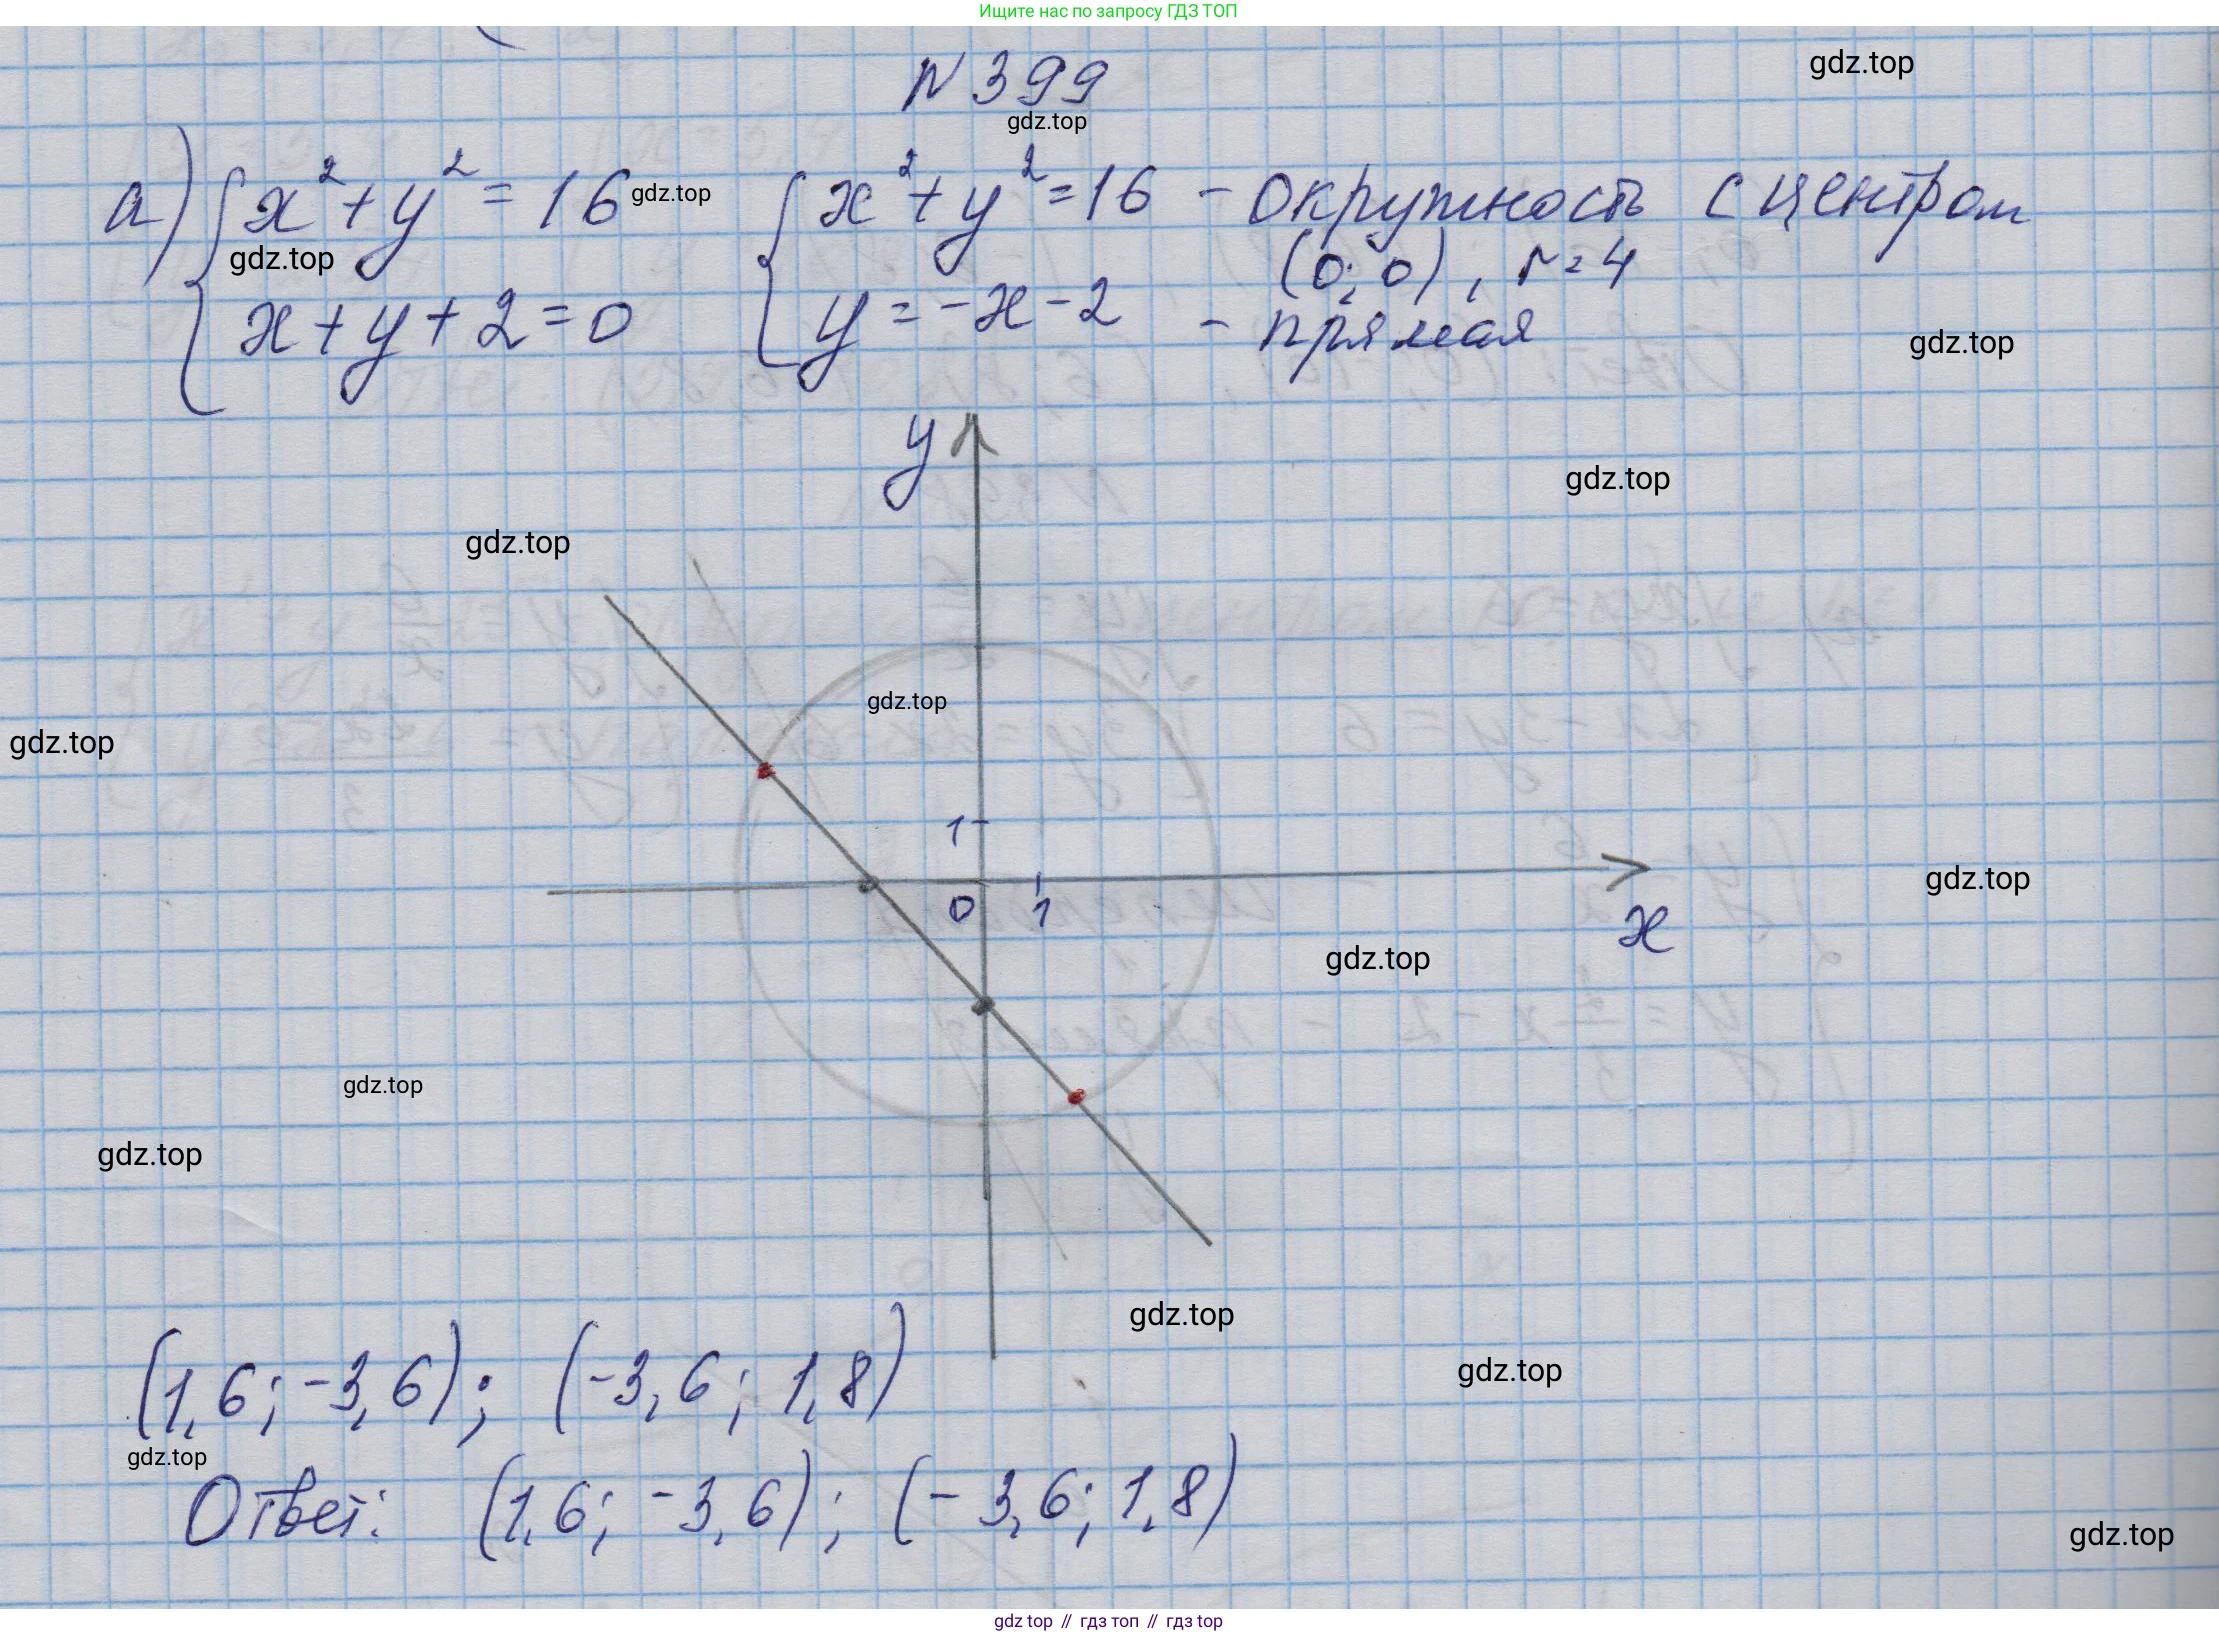 Ищите нас по запросу ГДЗ ТОП
N 399
gdz.top
gdz.top
а) { x² + y² = 16 gdz.top { x² + y² = 16 - окружность с центром
gdz.top (0; 0), r = 4
x + y + 2 = 0 y = -x - 2 - прямая
gdz.top
y
gdz.top
gdz.top
gdz.top
gdz.top
1
0 1
gdz.top
x
gdz.top
gdz.top
gdz.top
gdz.top
(1,6; -3,6); (-3,6; 1,8)
gdz.top
gdz.top
Ответ: (1,6; -3,6); (-3,6; 1,8)
gdz.top
gdz top // гдз топ // гдз top